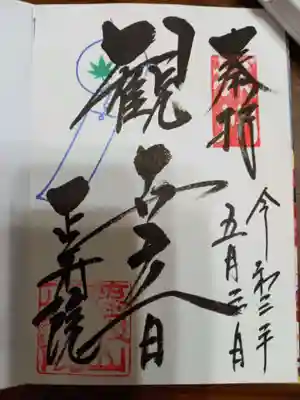 奉拝
令和三年
五月三日
観世音
正寿院